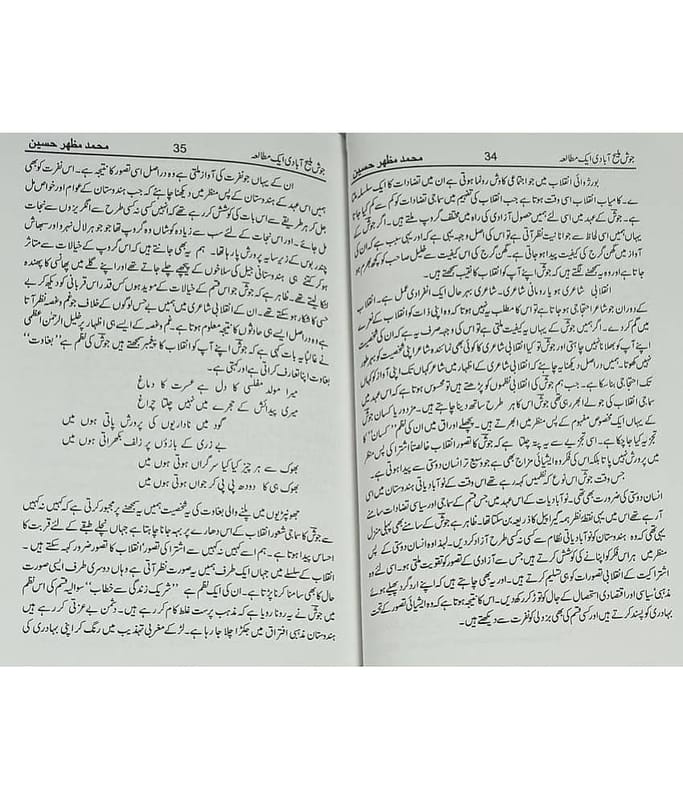 جوش ملیح آبادی ایک مطالعہ 34 محمد مظہر حسین
بورژوائی انقلاب میں جو اجتماعی کاوش رونما ہوتی ہے ان میں تضادات کا ایک سلسلہ ملتا
ہے۔ کامیاب انقلاب اسی وقت ہوتا ہے جب انقلاب کی تنظیم میں سماجی تضادات کو کم سے کم کیا جاتا
ہے۔ جوش کے عہد میں اس لئے ہمیں حصول آزادی کی راہ میں مختلف گروپ ملتے ہیں۔ اگر جوش کے
یہاں ہمیں اسی لحاظ سے جو انانیت نظر آتی ہے تو اس کی اصل وجہ یہی ہے اور یہی سبب ہے کہ ان کی
آواز میں گھن گرج کی کیفیت پیدا ہو جاتی ہے۔ گھن گرج کی اس کیفیت سے خلیل صاحب کو
جاتا ہے اور وہ یہ سمجھنے لگتے ہیں کہ جوش اپنے آپ کو انقلاب کا نقیب سمجھتے ہیں۔
انقلابی شاعری ہو یا رومانی شاعری۔ بہر حال ایک انفرادی عمل ہے۔ انقلاب
کے دوران جو شاعر احتجاجی ہو جاتا ہے تو اس کا مطلب یہ نہیں ہوتا کہ وہ اپنی ذات کو انقلاب کے نعرے
میں گم کر دے۔ اگر ہمیں جوش کے یہاں یہ کیفیت ملتی ہے تو اس کی وجہ صرف یہ ہے کہ ان کی شخصیت
اپنے آپ کو بھلانا نہیں چاہتی اور جوش تو کیا انقلابی شاعری کا کوئی بھی نمائندہ شاعر اپنی شخصیت کو
نہیں کھوتا۔ ہمیں دراصل دیکھنا یہ چاہئے کہ انقلابی شاعری کے اظہار میں شاعر کہاں تک اپنی آواز کو کہاں
تک احتجاجی بنا سکا ہے۔ جب ہم جوش کی انقلابی نظموں کو پڑھتے ہیں تو محسوس ہوتا ہے کہ اس عہد میں
سماجی انقلاب کی جو لے ابھر رہی تھی جوش اس کا ہر طرح ساتھ دینا چاہتے ہیں۔ مزدور یا کسان جوش
کے یہاں ایک مخصوص مفہوم کے پس منظر میں ابھرتے ہیں۔ پچھلے اوراق میں ان کی نظم "کسان" کا
تجزیہ کیا جا چکا ہے۔ اسی تجزیے سے یہ پتہ چلتا ہے کہ جوش کا تصور انقلاب خالصتاً اشتراکی پس منظر
میں پرورش نہیں پاتا بلکہ اس کی فکر وہ ایشیائی مزاج بھی ہے جو وسیع تر انسان دوستی سے پیدا ہوتی ہے۔
جس وقت جوش اس نوع کی نظمیں کہہ رہے تھے اس وقت کے نو آبادیاتی ہندوستان میں اسی
انسان دوستی کی ضرورت بھی تھی۔ نو آبادیات کے اس عہد میں جس قسم کے سماجی اور سیاسی تضادات سامنے
آ رہے تھے اس میں یہی نقطۂ نظر ہمہ گیر اپیل کا ذریعہ بن سکتا تھا۔ ظاہر ہے جوش کے سامنے بھی پہلی منزل
یہی تھی کہ وہ ہندوستان کو نو آبادیاتی نظام سے کسی نہ کسی طرح آزاد کر دیں۔ لہذا وہ انسان دوستی کے پس
منظر میں ہر اس فکر کو اپنانے کی کوشش کرتے ہیں جس سے آزادی کے تصور کو تقویت ملتی ہو۔ اس لئے وہ
اشتراکیت کے انقلابی تصورات کو بھی تسلیم کرتے ہیں۔ اور یہ بھی چاہتے ہیں کہ اپنے ارد گرد پھیلے ہوئے
مذہبی سیاسی اور اقتصادی استحصال کے جال کو توڑ کر رکھ دیں۔ اس کا نتیجہ ہوتا ہے کہ وہ ایشیائی تصور کے تحت
بہادری کو پسند کرتے ہیں اور کسی قسم کی بھی بزدلی کو نفرت سے دیکھتے ہیں۔
جوش ملیح آبادی ایک مطالعہ 35 محمد مظہر حسین
ان کے یہاں جو نفرت کی آواز ملتی ہے وہ دراصل اسی تصور کا نتیجہ ہے۔ اس نفرت کو بھی
ہمیں اس عہد کے ہندوستان کے پس منظر میں دیکھنا چاہئے کہ جب ہندوستان کے عوام اور خواص مل
جل کر ہر طریقے سے اس بات کی کوشش کر رہے تھے کہ انہیں کسی نہ کسی طرح سے انگریزوں سے نجات
مل جائے۔ اور اس نجات کے لئے سب سے زیادہ کوشاں وہ گروپ تھا جو جواہر لال نہرو اور سبھاش
چندر بوس کے زیر سایہ پرورش پا رہا تھا۔ ہم یہ بھی جانتے ہیں کہ اس گروپ کے خیالات سے متاثر
ہو کر کتنے ہی ہندوستانی جیل کی سلاخوں کے پیچھے چلے جاتے تھے اور اپنے گلے میں پھانسی کا پھندہ
لگا لیتے تھے۔ ظاہر ہے کہ جوش جو اس قسم کے خیالات کے مؤید ہوں کس قدر اس قربانی کو دیکھ کر بے
حسی کا شکار ہو سکتے تھے۔ ان کے انقلابی شاعری میں ہمیں بے حس لوگوں کے خلاف جو غم و غصہ نظر آتا
ہے وہ دراصل ایسے ہی حادثوں کا نتیجہ معلوم ہوتا ہے۔ غم و غصہ کے ایسے ہی اظہار پر خلیل الرحمٰن اعظمی
نے غالباً یہ بات کہی ہے کہ جوش اپنے آپ کو انقلاب کا پیغمبر سمجھتے ہیں جوش کی نظم ہے "بغاوت"
بغاوت اپنا تعارف کراتی ہے اور کہتی ہے۔
میرا مولد مفلسی کا دل ہے عسرت کا دماغ
میری پیدائش کے حجرے میں نہیں جلتا چراغ
گود میں ناداریوں کی پرورش پاتی ہوں میں
بے زری کے بازوؤں پر زلف بکھراتی ہوں میں
بھوک سے ہر چیز کیا کیا سرگراں ہوتی ہوں میں
بھوک ہی کا دودھ پی پی کر جواں ہوتی ہوں میں
جھونپڑیوں میں پلنے والی بغاوت کی یہ شخصیت ہمیں یہ سمجھنے پر مجبور کرتی ہے کہ کہیں نہ کہیں
سے جوش کا سماجی شعور انقلاب کے اس دھارے پر بہہ جانا چاہتا ہے جہاں نچلے طبقے کے لئے قربت کا
احساس پیدا ہوتا ہے۔ ہم اسے کہیں نہ کہیں سے اشتراکی تصور انقلاب کا تصور ضرور کہہ سکتے ہیں۔
انقلاب کے سلسلے میں جہاں ایک طرف ہمیں یہ صورت نظر آتی ہے وہاں دوسری طرف ایسی صورت
حال کا بھی سامنا کرنا پڑتا ہے۔ ان کی ایک نظم ہے "شریک زندگی سے خطاب" سوالیہ قسم کی اس نظم
میں جوش نے یہ رونا رویا ہے کہ مذہب پرست غلط کام کر رہے ہیں۔ دشمن بے عزتی کر رہے ہیں
ہندوستان مذہبی افتراق میں جکڑا چلا جا رہا ہے۔ لڑکے مغربی تہذیب میں رنگ کر اپنی بہادری کی